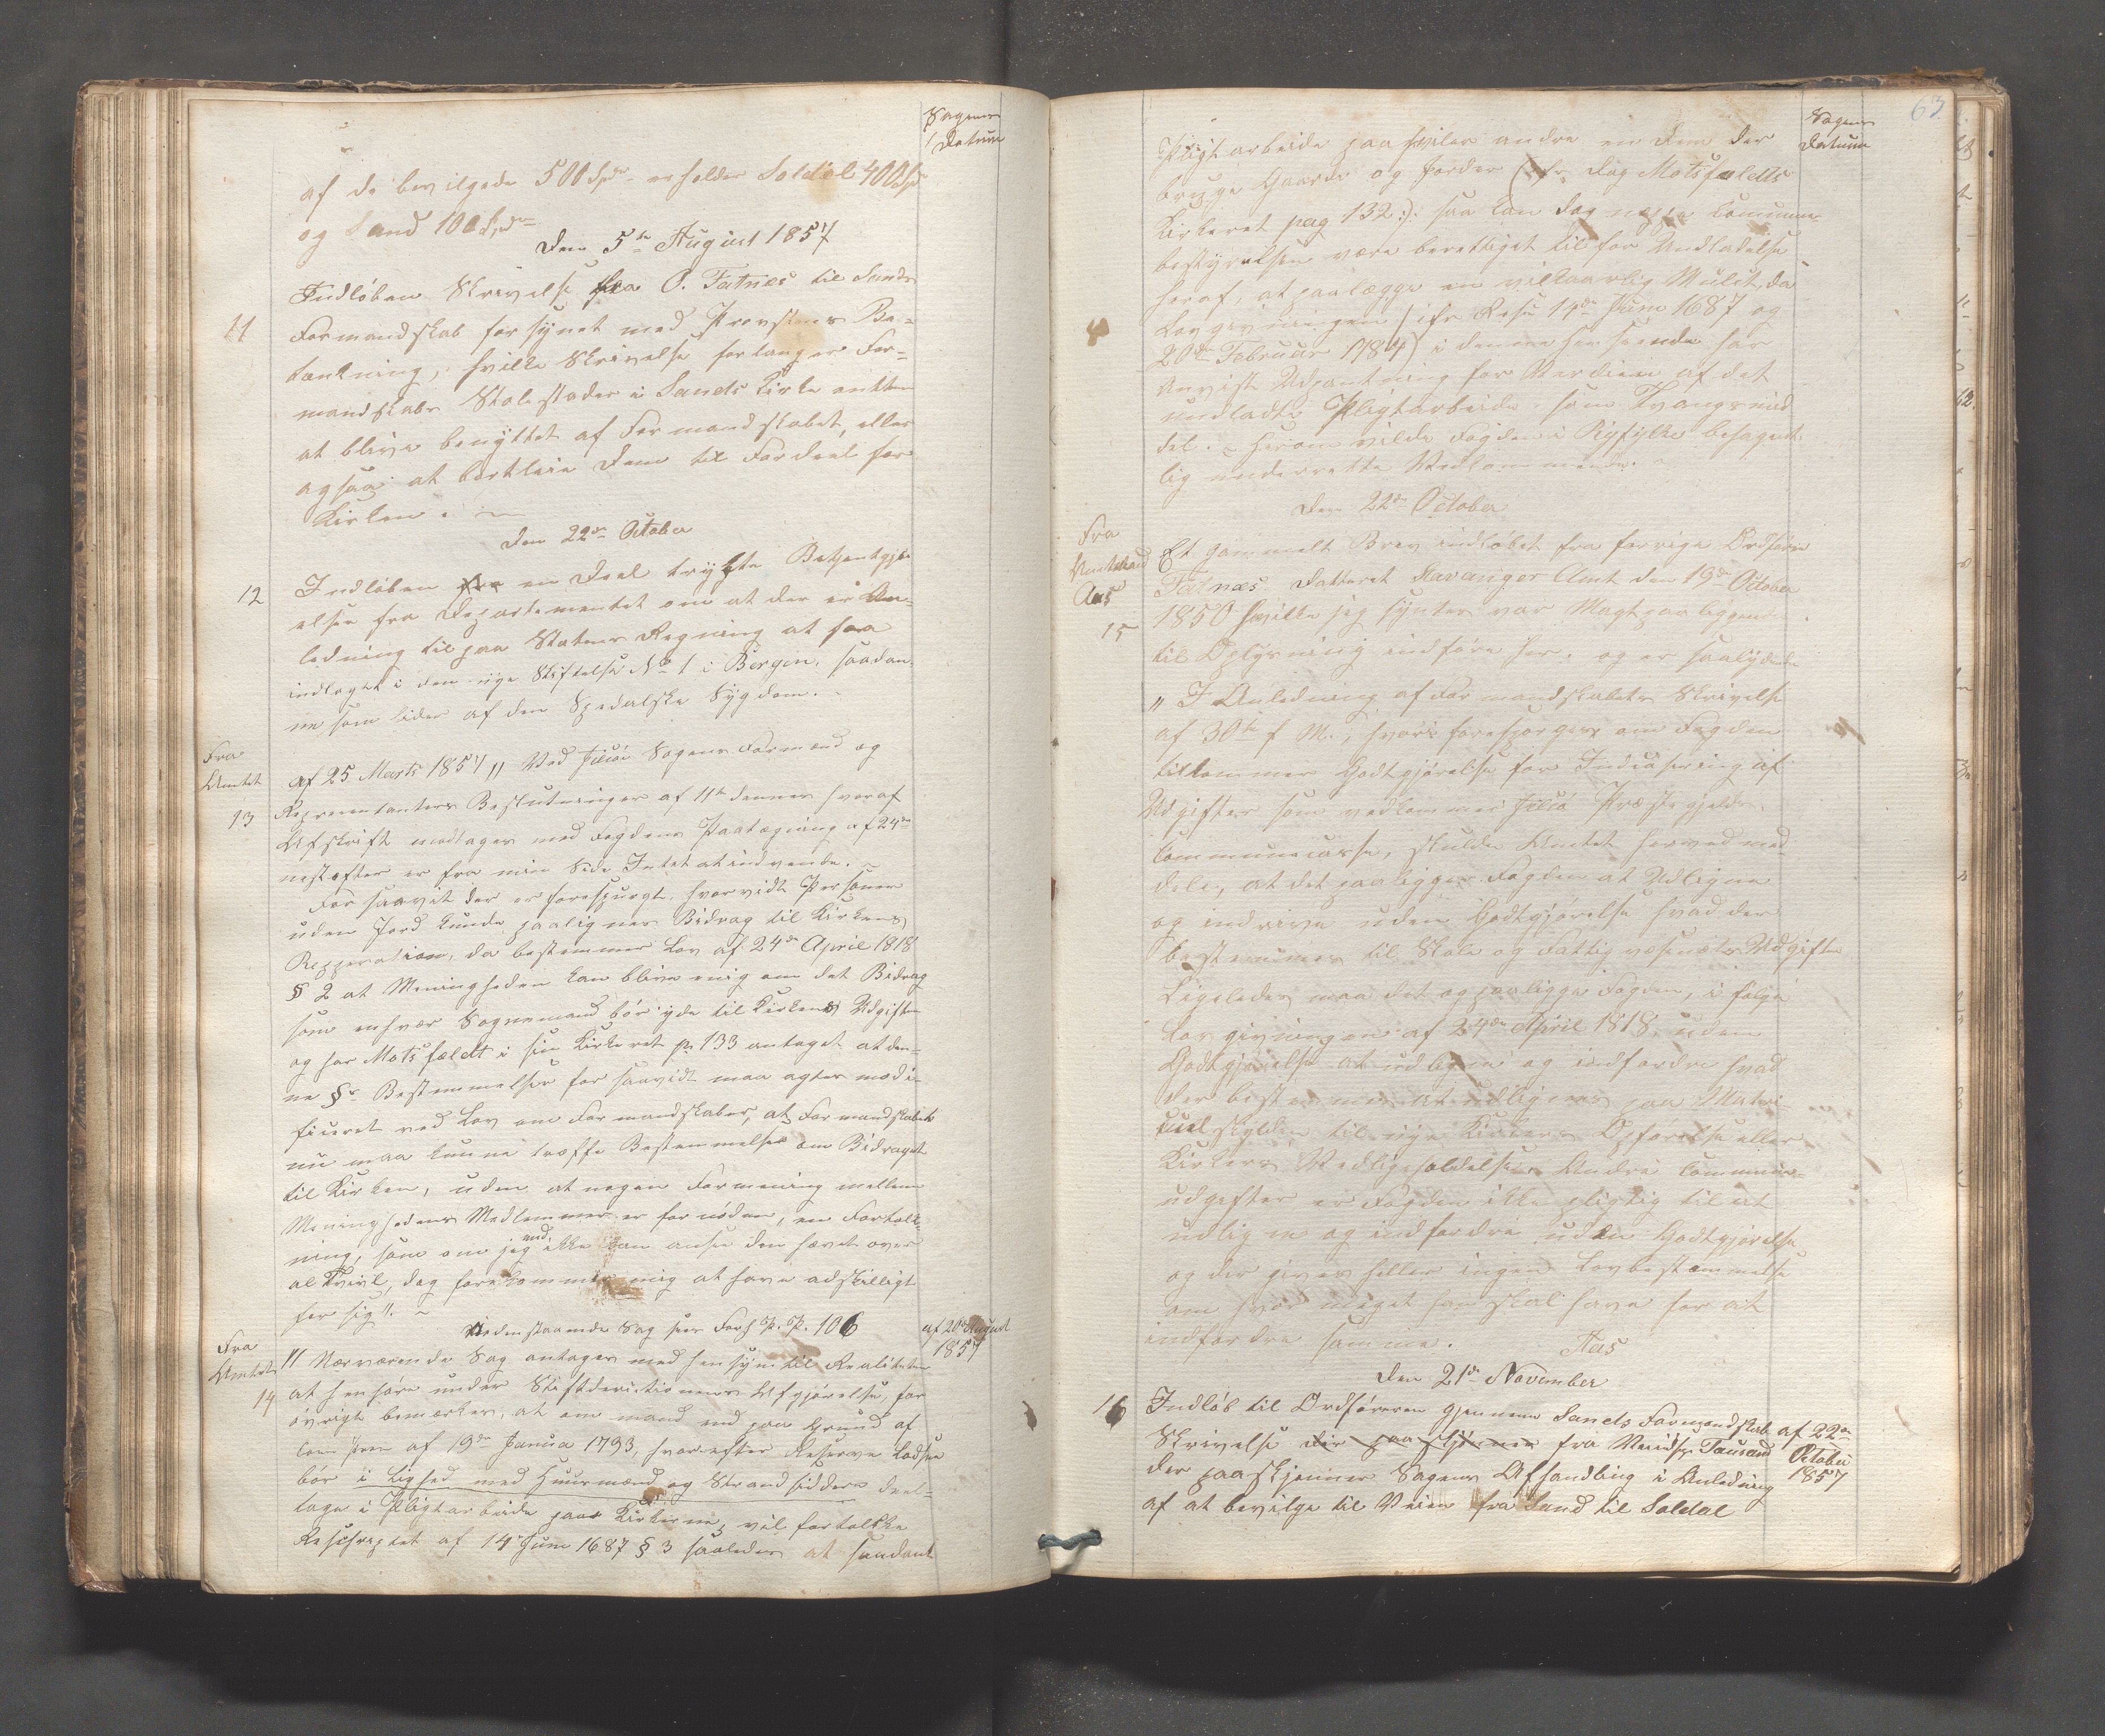 Sagens
Datum
af de bevilgede 500 Spdr erholder Soldal 400 Spd
og Sand 100 Spdr
Den 5te August 1857
11
Indløben Skrivelse fra O. Fatnes til Sands
Formandskab forsynet med Provstens Be-
tænkning, hvilke Skrivelse forlanger For-
mandskabs Stolestader i Sands Kirke enten
at blive benyttet af Formandskabet, eller
ogsaa at bortleie dem til Fordeel for
Kirken.
Den 22de October
12
Indløben en Deel trykte Bekjentgjø-
elser fra Departementet om at der er An-
ledning til paa Statens Regning at faa
indlagt i den nye Stiftelse No 1 i Bergen, saadan-
ne som lider af den Spedalske Sygdom.
Fra
Amtet
13
af 25 Marts 1857 „ Ved Jelsø Sogns Formend og
Representanters Beslutninger af 11te dennes hvoraf
Afskrift modtages med Fogdens Paategning af 24de
næstefter er fra min Side Intet at indvende.
For saavit der er forespurgt, hvorvidt Personer
uden Jord kunde paalignes Bidrag til Kirkens
Repperation, da bestemmer Lov af 24de April 1818
§ 2 at Menigheden kan blive enig om det Bidrag
som enhver Sognemand bør yde til Kirkens Udgifter
og har Motsfeldt i sin Kirkeret p. 133 antaget at den-
ne §s Bestemmelser for saavidt maa agtes modi-
ficeret ved Lov om Formandskaber, at Formandskabet
nu maa kunne træffe Bestemmelser om Bidraget
til Kirken, uden at nogen Forening mellem
Menighedens Medlemmer er fornøden, en Fortolk-
ning, som om jeg end ikke kan ansee den hævet over
al Tvivl, dog forekommer mig at have adskilligt
for sig“.
Nedenstaaende Sag sees Forh. P. P. 106
af 20de August
1857
Fra
Amtet
14
„ Nærværende Sag antages med hensyn til Realiteten
at henhøre under Stiftderictionens Afgjørelse, for
øvrigt bemærkes, at om mand end paa Grund af
Canc. Prom af 19de Janua 1793, hvorefter Reserve Lodser
bør i Lighed med Huusmænd og Strandsiddere deel-
tage i Pligtarbeide paa Kirkerne, vil fortolke
Reschriptet af 14 Juni 1687 § 3 saaledes at saadant
63
Sagens
Datum
Pligtarbeide paahviler andre en dem der
bruge Gaarde og Jorder (cfr. dog Motsfeldts
Kirkeret pag 132): saa kan dog neppe Commune-
bestyrelsen være berettiget til for Undladelse
heraf, at paalægge en vilkaarlig Mulct, da
Lovgivningen (cfr Resc 14de Juni 1687 og
20de Februar 1784) i denne Henseende har
Anvist Udpantning for Værdien af det
undladte Pligtarbeide som Tvangsmid-
del. Herom vilde Fogden i Ryfylke behagent-
lig underrette Vedkommende.
Den 22de October
Fra
Amtmand
Aas
15
Et gammelt Brev indløbet fra forrige Ordfører
Fatnæs datteret Stavanger Amt den 19de October
1850 hvilke jeg syntes var Magtpaaliggende
til Oplysning indføre her. og er saalydende
„ I Anledning af Formandskabets Skrivelse
af 30te f M., hvori forespørges om Fogden
tilkommer Godtgjørelse for Indcasering af
Udgifter som vedkommer Jelsø Præstegjelds
Communecasse, skulde Amtet herved med-
dele, at det paaligger Fogden at Udligne
og inddrive uden Godtgjørelse hvad der
bestemmes til Skole og Fattigvæsenets Udgifter
Ligeledes maa det og paaligge Fogden, i følge
Lovgivningen af 24de April 1818, uden
Godtgjørelse at udligne og indfordre hvad
der bestemmes at udlignes paa Matri-
culskylden til nye Kirkers Opførelse eller
Kirkers Vedligeholdelse. Andre Commune-
udgifter er Fogden ikke pligtig til at
udligne og indfordre uden Godtgjørelse
og der giver heller ingen Lovbestemmelse
om hvor meget han skal have for at
indfordre samme. Aas
Den 21de November
16
Indløb til Ordføreren gjennem Sands Formandskab
Skrivelse der paaskjønner fra Veiinsp Taurand
der paaskjønner Sagens Afhandling i Anledning
af at bevilge til Veien fra Sand til Soldal
af 22de
October
1857